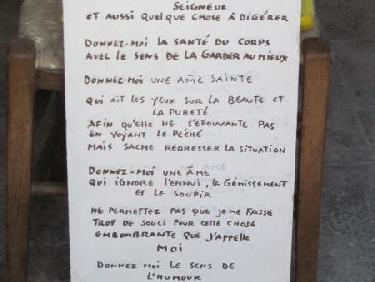 SEIGNEUR
ET AUSSI QUELQUE CHOSE À DIGÉRER
DONNEZ-MOI LA SANTÉ DU CORPS
AVEC LE SENS DE LA GARDER AU MIEUX
DONNEZ MOI UNE AME SAINTE
QUI AIT LES YEUX SUR LA BEAUTE ET
LA PURETÉ
AFIN QU'ELLE NE S'EPOUVANTE PAS
EN VOYANT LE PÉCHÉ
MAIS SACHE REDRESSER LA SITUATION
DONNEZ-MOI UNE AME
QUI IGNORE L'ENNUI, LE GÉMISSEMENT
ET LE SOUPIR
NE PERMETTEZ PAS QUE JE ME FASSE
TROP DE SOUCI POUR CETTE CHOSE
EMBOMBRANTE QUE J'APPELLE
MOI
DONNEZ MOI LE SENS DE
L'HUMOUR